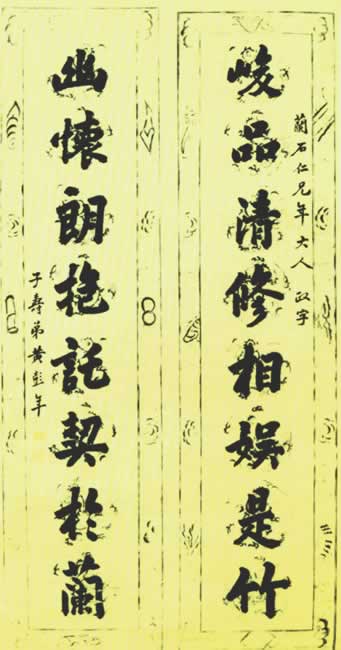 蘭石仁兄年大人 政字
峻品清修相娛是竹
幽懷朗抱託契於蘭
子壽弟黃彭年